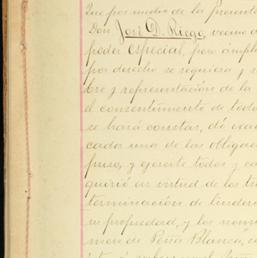 Que por medio de la presente
Don José D. Riego, vecino d
poder especial, pero ampli
por derecho se requiera y s
bre y representación de la
el consentimiento de todo
se hará constar, dé eva
cada una de las obligac
puso, y ejercite todos y ca
quirió en virtud de los tra
terminación de linderos
su propiedad, y los nom
mon de Peña Blanca, c